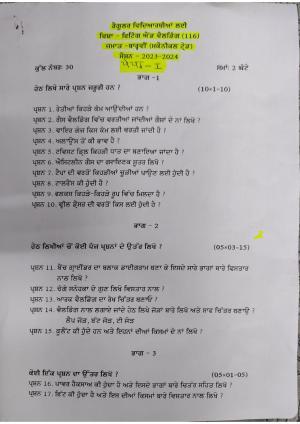 ਰੈਗੂਲਰ ਵਿਦਿਆਰਥੀਆਂ ਲਈ
ਵਿਸ਼ਾ – ਫਿਟਿੰਗ ਐਂਡ ਵੈਲਡਿੰਗ (116)
ਜਮਾਤ -ਬਾਰ੍ਹਵੀਂ (ਮਕੈਨੀਕਲ ਟ੍ਰੇਡ)
ਸੈਸ਼ਨ – 2023-2024
ਪੇਪਰ - I
ਕੁੱਲ ਨੰਬਰ: 30 ਸਮਾਂ: 2 ਘੰਟੇ
ਭਾਗ -1
ਹੇਠ ਲਿਖੇ ਸਾਰੇ ਪ੍ਰਸ਼ਨ ਜ਼ਰੂਰੀ ਹਨ ? (10×1-10)
ਪ੍ਰਸ਼ਨ 1. ਰੇਤੀਆਂ ਕਿਹੜੇ ਕੰਮ ਆਉਂਦੀਆਂ ਹਨ ?
ਪ੍ਰਸ਼ਨ 2. ਗੈਸ ਵੈਲਡਿੰਗ ਵਿੱਚ ਵਰਤੀ ਜਾਂਦੀਆਂ ਗੈਸਾਂ ਦੇ ਨਾਂ ਲਿਖੋ ?
ਪ੍ਰਸ਼ਨ 3. ਵਾਇਰ ਗੇਜ ਕਿਸ ਕੰਮ ਲਈ ਵਰਤੀ ਜਾਂਦੀ ਹੈ ?
ਪ੍ਰਸ਼ਨ 4. ਅਲਾਉਂਸ ਤੋਂ ਕੀ ਭਾਵ ਹੈ ?
ਪ੍ਰਸ਼ਨ 5. ਟਵਿਸਟ ਡ੍ਰਿਲ ਕਿਹੜੀ ਧਾਤ ਦਾ ਬਣਾਇਆ ਜਾਂਦਾ ਹੈ ?
ਪ੍ਰਸ਼ਨ 6. ਐਸਿਟਲੀਨ ਗੈਸ ਦਾ ਰਸਾਇਣਕ ਸੂਤਰ ਲਿਖੋ ?
ਪ੍ਰਸ਼ਨ 7. ਟੈਪਾਂ ਦੀ ਵਰਤੋਂ ਕਿਹੜੀਆਂ ਚੂੜੀਆਂ ਪਾਉਣ ਲਈ ਹੁੰਦੀ ਹੈ ?
ਪ੍ਰਸ਼ਨ 8. ਟਾਲਰੈਂਸ ਕੀ ਹੁੰਦੀ ਹੈ ?
ਪ੍ਰਸ਼ਨ 9. ਫਲਕਸ ਕਿਹੜੇ-ਕਿਹੜੇ ਰੂਪ ਵਿੱਚ ਮਿਲਦਾ ਹੈ ?
ਪ੍ਰਸ਼ਨ 10. ਵ੍ਹੀਲ ਡ੍ਰੈਸਰ ਦੀ ਵਰਤੋਂ ਕਦੋਂ ਕੀਤੀ ਜਾਂਦੀ ਹੈ ?
ਭਾਗ - 2
ਹੇਠ ਲਿਖੀਆਂ ਚੋਂ ਕੋਈ ਪੰਜ ਪ੍ਰਸ਼ਨਾਂ ਦੇ ਉੱਤਰ ਲਿਖੋ ? (05×03-15)
ਪ੍ਰਸ਼ਨ 11. ਬੈਂਚ ਗ੍ਰਾਈਂਡਰ ਦਾ ਬਲਾਕ ਡਾਇਗਰਾਮ ਬਣਾ ਕੇ ਇਸਦੇ ਸਾਰੇ ਭਾਗਾਂ ਬਾਰੇ ਵਿਸਤਾਰ
ਨਾਲ ਲਿਖੋ ?
ਪ੍ਰਸ਼ਨ 12. ਚੰਗੇ ਸਨੇਹਕਾ ਦੇ ਗੁਣ ਵਿਸਤਾਰ ਨਾਲ ਲਿਖੋ ?
ਪ੍ਰਸ਼ਨ 13. ਆਰਕ ਵੈਲਡਿੰਗ ਦਾ ਰੇਖਾ ਚਿੱਤਰ ਬਣਾਓ ?
ਪ੍ਰਸ਼ਨ 14. ਵੈਲਡਿੰਗ ਨਾਲ ਲਗਾਏ ਜਾਂਦੇ ਹੇਠ ਲਿਖੇ ਜੋੜਾਂ ਬਾਰੇ ਲਿਖੋ ਅਤੇ ਸਾਫ ਚਿੱਤਰ ਬਣਾਓ ?
ਲੈਪ ਜੋੜ, ਬੱਟ ਜੋੜ, ਟੀ ਜੋੜ
ਪ੍ਰਸ਼ਨ 15. ਕੂਲੈਂਟ ਕੀ ਹੁੰਦੇ ਹਨ ਅਤੇ ਇਹਨਾਂ ਦੀਆਂ ਕਿਸਮਾਂ ਦੇ ਨਾਂ ਲਿਖੋ ?
ਭਾਗ - 3
ਕੋਈ ਇੱਕ ਪ੍ਰਸ਼ਨ ਦਾ ਉੱਤਰ ਲਿਖੋ ? (05×01-05)
ਪ੍ਰਸ਼ਨ 16. ਪਾਵਰ ਹੈਕਸਾਅ ਕੀ ਹੁੰਦਾ ਹੈ ਅਤੇ ਇਸਦੇ ਭਾਗਾਂ ਬਾਰੇ ਚਿੱਤਰ ਸਹਿਤ ਲਿਖੋ ?
ਪ੍ਰਸ਼ਨ 17. ਫਿੱਟ ਕੀ ਹੁੰਦਾ ਹੈ ਅਤੇ ਇਸ ਦੀਆਂ ਕਿਸਮਾਂ ਬਾਰੇ ਵਿਸਤਾਰ ਨਾਲ ਲਿਖੋ ?